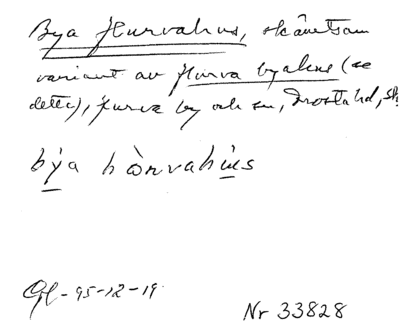 Bya hurvahus, skånetsam
variant av hurva byahus (se
detta), hurva by och sn, Frosta hd, sk.
bỳa hòrvahùs
Gfl-95-12-19.
Nr 33828